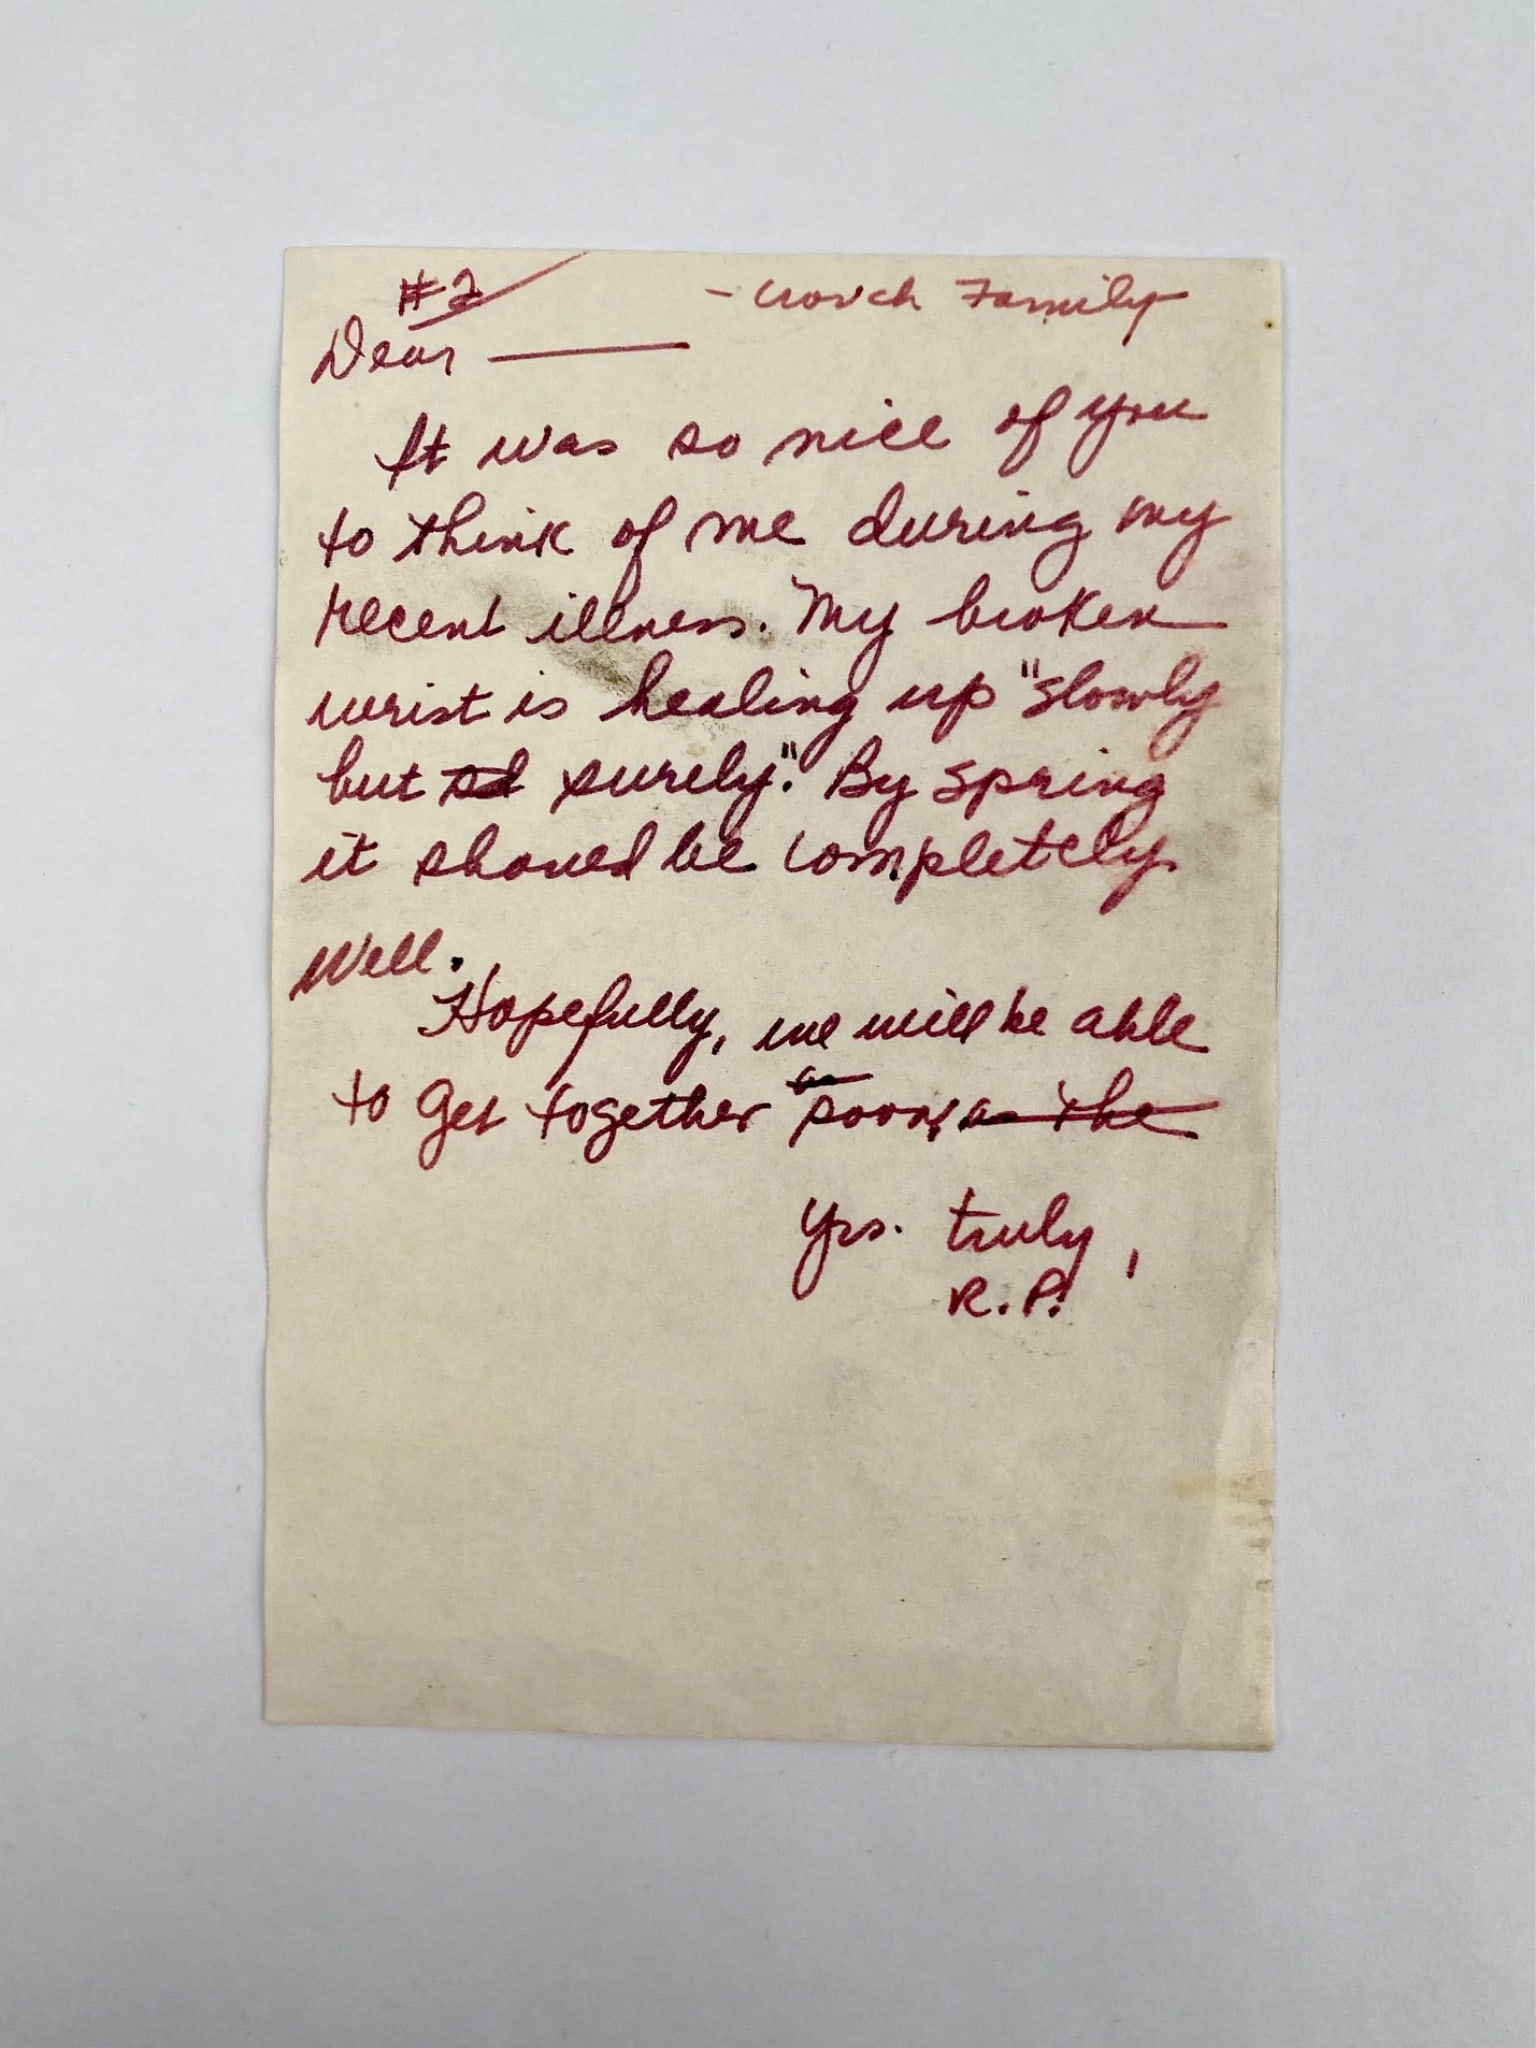 #2 - Crouch Family
Dear ———
It was so nice of you
to think of me during my
recent illness. My broken
wrist is healing up "slowly
but surely". By spring
it should be completely
well.
Hopefully, we will be able
to get together as soon, as the
Yrs. truly,
R.P.